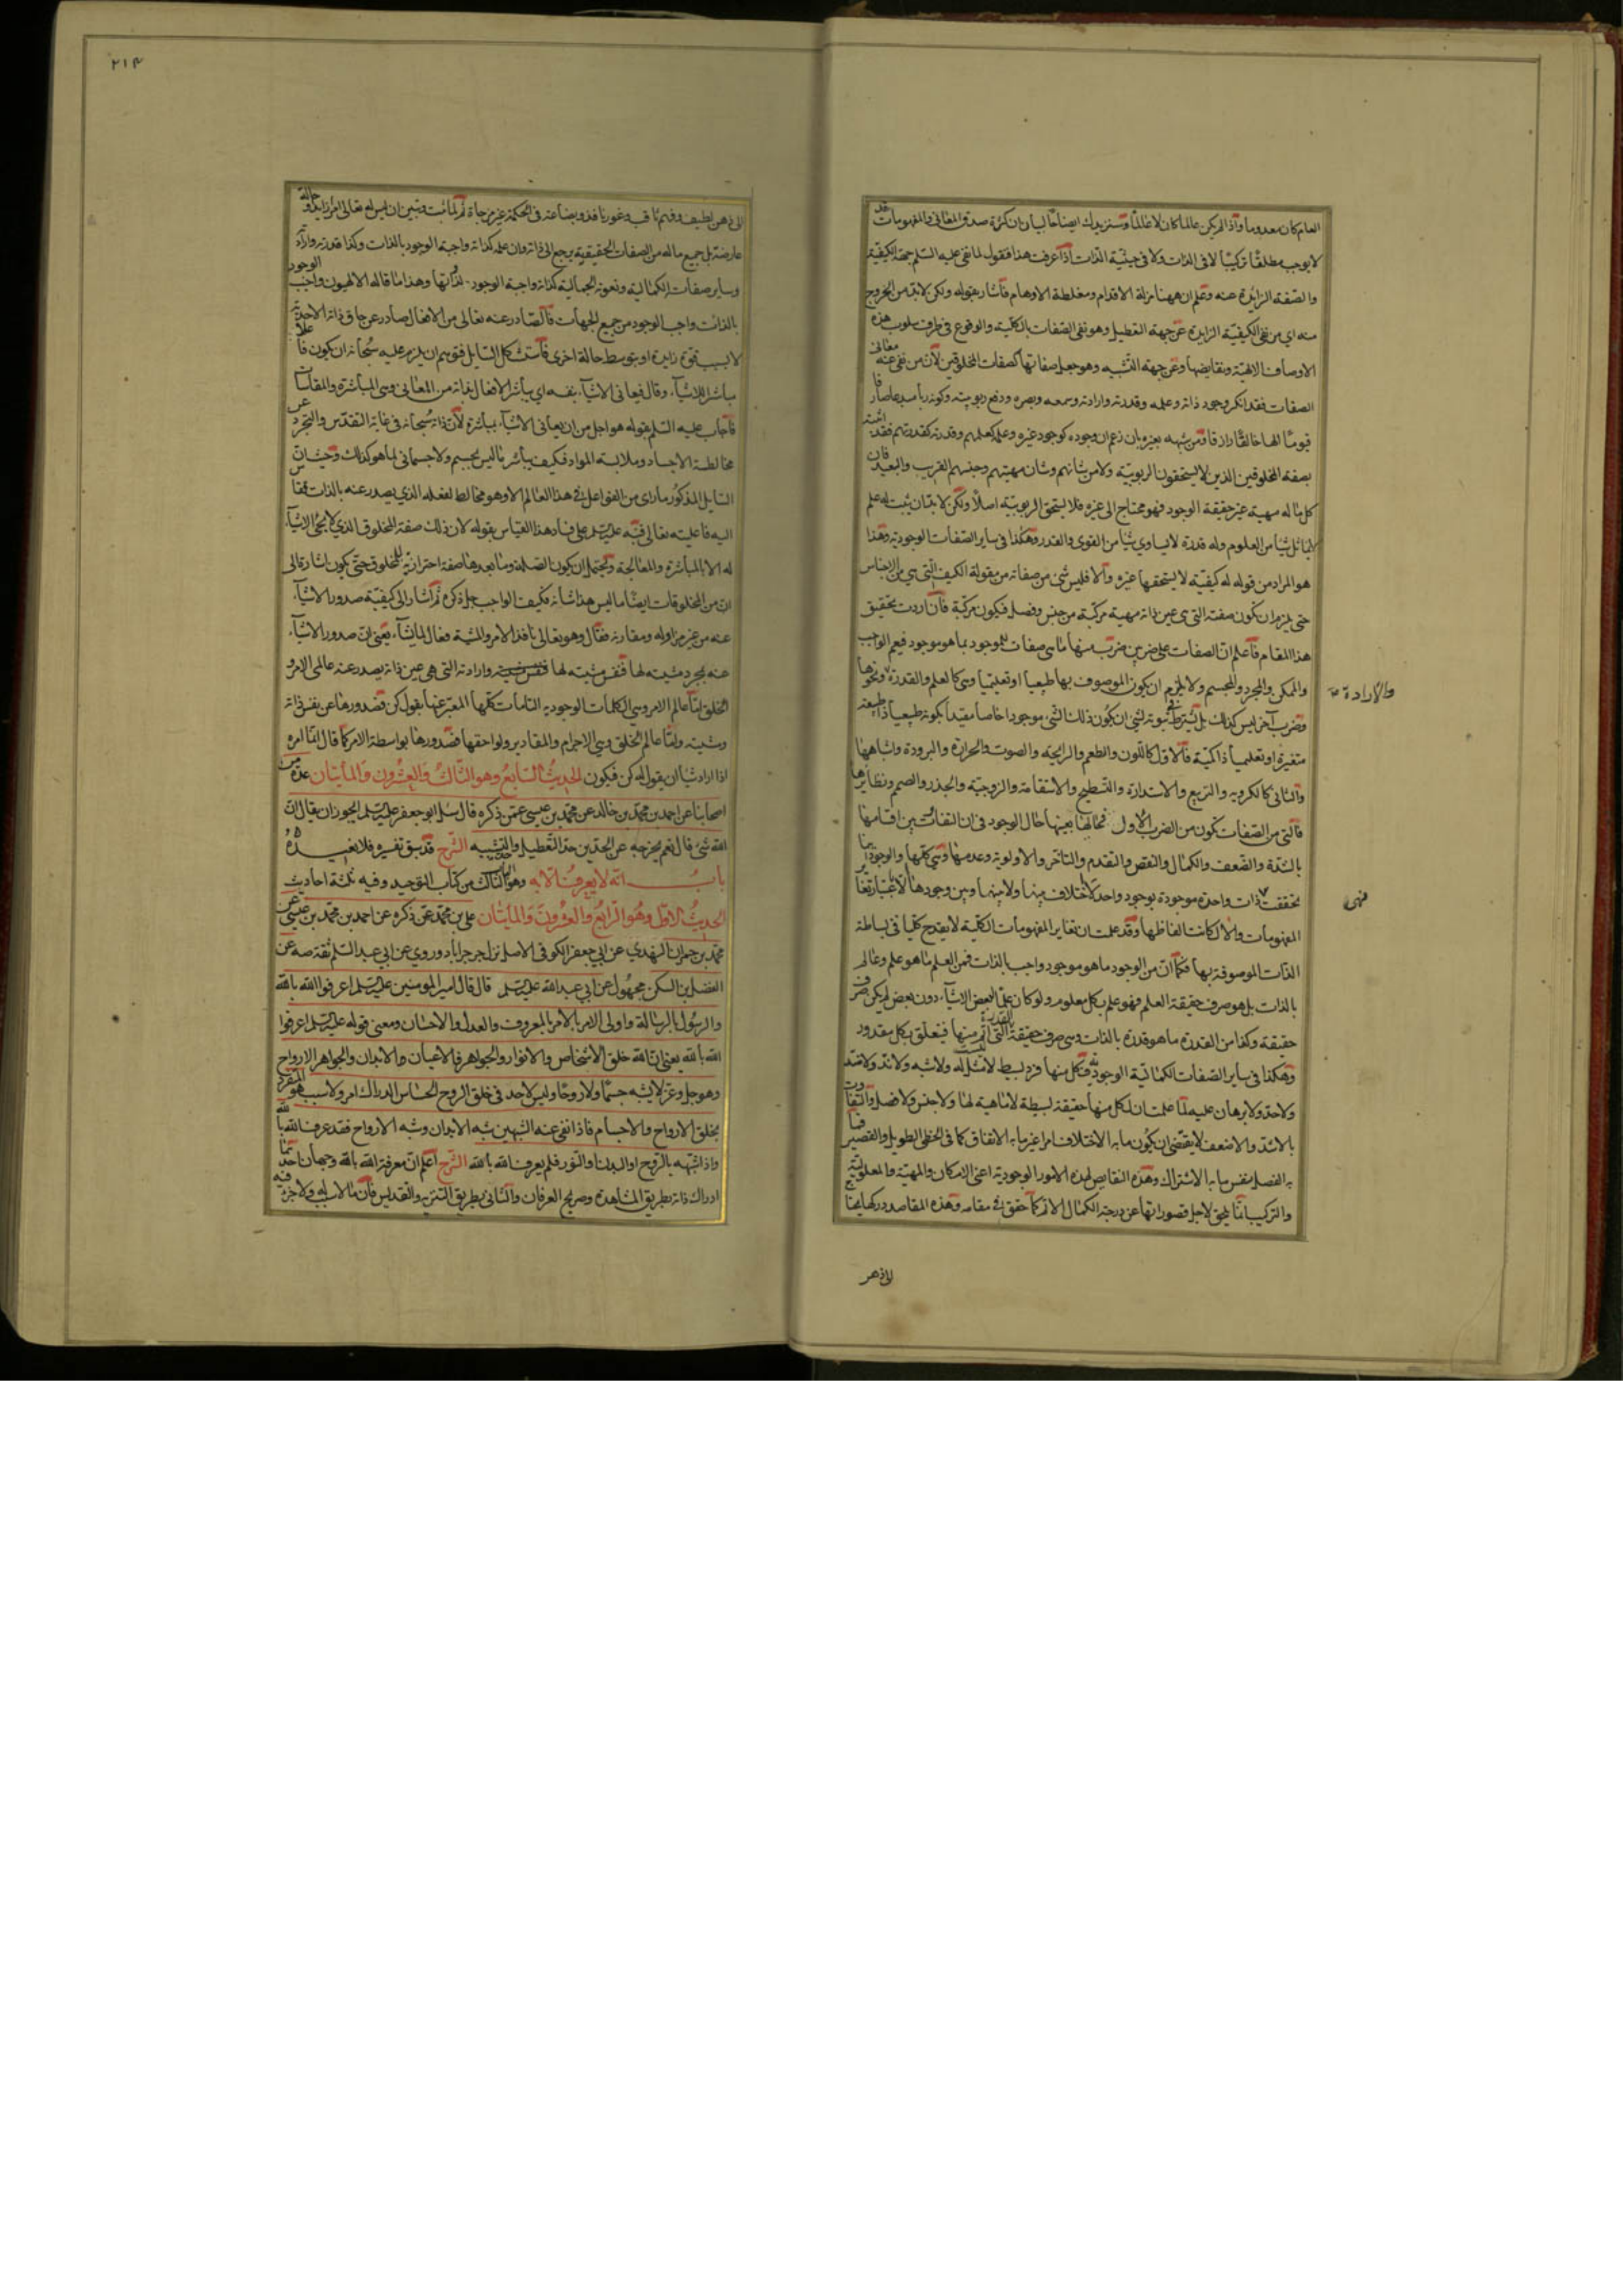 العلم كان معدوما واذا لم يكن عالما كان لا عالما وسنزيدك ايضاحا لبيان ان كثرة صدق المعانى والمفهومات قد
لا يوجب مطلقا تركيبا لا فى الذات ولا فى حيثية الذات اذا عرفت هذا فنقول لما نفى عليه السلم جهة الكيفية
والصفة الزايدة عنه وعلم ان ههنا مزلة الاقدام ومغلطة الاوهام فاشار بقوله ولكن لابد من الخروج
منه اى من نفى الكيفية الزايدة عن جهة التعطيل وهو نفى الصفات بالكلية والوقوع فى طرف سلوب هذه
الاوصاف الالهية ونقايضها وعن جهة التشبيه وهو جعل صفاتها كصفات المخلوقين لان من نفى عنه معانى
الصفات فقد انكر وجود ذاته وعلمه وقدرته وارادته وسمعه وبصره ودفع ربوبيته وكونه ربا مبدعا صانعا
قيوما الها خالقا رازقا ومن شبهه بغيره بان زعم ان وجوده كوجود غيره وعلمه كعلمهم وقدرته كقدرتهم فقد اثبته
بصفة المخلوقين الذين لا يستحقون الربوبية ولا من شانهم وشان مهيتهم وجنسهم القريب والبعيد فان
كل ما له مهية غير حقيقة الوجود فهو محتاج الى غيره فلا يستحق الربوبية اصلا ولكن لابد ان يثبت له علم
لا يماثل شيئا من العلوم وله قدرة لا يساوى شيئا من القوى والقدر وهكذا فى ساير الصفات الوجودية وهذا
هو المراد من قوله له كيفية لا يستحقها غيره والا فليس شئ من صفاته من مقولة الكيف التى هى من الاجناس
حتى يلزم ان تكون صفته التى هى عين ذاته مهية مركبة من جنس وفصل فيكون مركبة فان اردت تحقيق
هذا المقام فاعلم ان الصفات على ضربين ضرب منها ما هى صفات للموجود بما هو موجود فيعم الواجب
والممكن والمجرد والمجسم ولا يلزم ان يكون الموصوف بها طبيعيا او تعليميا وهى كالعلم والقدرة ونحوها
والارادة صح
وضرب آخر ليس كذلك بل يشترط فى ثبوته لشئ ان يكون ذلك الشئ موجودا خاصا مقيدا بكونه طبيعيا ذا طبيعة
متغيرة او تعليميا ذا كمية فالاول كاللون والطعم والرايحة والصوت والحرارة والبرودة واشباهها
والثانى كالكروية والتربيع والاستدارة والتسطيح والاستقامة والزوجية والجذر والصمم ونظايرها
فالتى من الصفات تكون من الضرب الاول فحالها بعينها حال الوجود فى ان التفاوت بين اقسامها
بالشدة والضعف والكمال والنقص والتقدم والتاخر والاولوية وعدمها وهى كلها والوجود
تحققت ذات واحدة موجودة بوجود واحد لا اختلاف بينها ولا بينها وبين وجودها الا باعتبار تغاير
فهى
المفهومات والا لكانت الفاظها وقد علمت ان تغاير المفهومات الكلية لا يقدح كليا فى بساطة
الذات الموصوفة بها فكما ان من الوجود ما هو موجود واجب بالذات فمن العلم ما هو علم وعالم
بالذات بل هو صرف حقيقة العلم فهو علم بكل معلوم ولو كان علما ببعض الاشياء دون بعض لم يكن صرف
حقيقته وكذا من القدرة ما هو قدرة بالذات وهى صرف حقيقة القدرة التى لا اتم منها فيتعلق بكل مقدور
وهكذا فى ساير الصفات الكمالية الوجودية فكل منها فرد بسيط لا مثل له ولا شبه ولا ند ولا ضد
ولا حد ولا برهان عليه لما علمت ان لكل منها حقيقة بسيطة لا ماهية لها ولا جنس ولا فصل والتفاوت
بالاشد والاضعف لا يقتضى ان يكون ما به الاختلاف امرا غير ما به الاتفاق كما فى الخط الطويل والقصير فما
به الفصل بنفس ما به الاشتراك وهذه النقايص لهذه الامور الوجودية اعنى الامكان والمهية والمعلولية
والتركيب انما يلحق لاجل قصوراتها عن درجة الكمال الاتم كما حقق فى مقامه وهذه المقاصد دركها يحتاج
الى ذهن
٢١٣
الى ذهن لطيف وفهم ثاقب وغور نافذ وبضاعة فى الحكمة غير مزجاة ثم لما ثبت وتبين ان ليس له تعالى امر زايد وحالة
عارضة بل جميع ماله من الصفات الحقيقية يرجع الى ذاته وان علمه كذاته واجبة الوجود بالذات وكذا قدرته وارادته
وساير صفاته الكمالية ونعوته الجمالية كذاته واجبة الوجود لذاتها وهذا ما قاله الالهيون واجب الوجود
بالذات واجب الوجود من جميع الجهات فالصادر عنه تعالى من الافعال صادر عن حاق ذاته الاحدية
لا بسبب قوة زايدة او بتوسط حالة اخرى فاستشكل السايل فتوهم ان يلزم عليه سبحانه ان يكون فاعلا
مباشرا للاشياء وقال فيعانى الاشياء بنفسه اى يباشر الافعال لفاته من المعانى وهى المباشرة والمقاسات
فاجاب عليه السلم بقوله هو اجل من ان يعانى الاشياء بمباشرة لان ذاته سبحانه فى غاية التقدس والتجرد عن
مخالطة الاجساد وملابسة المواد فكيف يباشر ما ليس بجسم ولا جسمانى لما هو كذلك وحيث ان
السايل المذكور ما راى من الفواعل فى هذا العالم الا وهو مخالط لفعله الذى يصدر عنه بالذات فقاس
اليه فاعليته تعالى فنبه عليه السلم على فساد هذا القياس بقوله لان ذلك صفة المخلوق الذى لا يجئ الاشياء
له الا بالمباشرة والمعالجة ويحتمل ان يكون الصلة وما بعدها صفة احترازية للمخلوق حتى يكون اشارة الى
ان من المخلوقات ايضا ما ليس هذا شانه فكيف الواجب جل ذكره ثم اشار الى كيفية صدور الاشياء
عنه من غير مزاولة ومقارنة فقال وهو تعالى نافذ الامر والمشية فعال لما يشاء يعنى ان صدور الاشياء
عنه بمجرد مشيته لها فنفس مشيته لها وارادته التى هى عين ذاته يصدر عنه عالمى الامر و
الخلق اما عالم الامر وهى الكلمات الوجودية التامات كلها المعبر عنها بقول كن فصدورها عن نفس ذاته
ومشيته واما عالم الخلق وهى الاجرام والمقادير ولواحقها فصدورها بواسطة الامر كما قال انما امره
اذا اراد شيئا ان يقول له كن فيكون الحديث السابع وهو الثالث والعشرون والمايتان عدة من
اصحابنا عن احمد بن محمد بن خالد عن محمد بن عيسى عمن ذكره قال سئل ابو جعفر عليه السلم ايجوز ان يقال ان
الله شئ قال نعم يخرجه عن الحدين حد التعطيل وحد التشبيه الشرح قد سبق تفسيره فلا نعيده
باب انه لا يعرف الا به وهو الباب الثالث من كتاب التوحيد وفيه ثلثة احاديث
الحديث الاول وهو الرابع والعشرون والمايتان على بن محمد عمن ذكره عن احمد بن محمد بن عيسى عن
محمد بن حمران النهدى عن ابى جعفر الكوفى الاصل نزل جرجرايا دوروى عن ابى عبد السلم ثقة صه عن
الفضل بن السكن مجهول عن ابى عبد الله عليه السلم قال قال امير المومنين عليه السلم اعرفوا الله بالله
والرسول بالرسالة واولى الامر بالامر بالمعروف والعدل والاحسان ومعنى قوله عليه السلم اعرفوا
الله بالله يعنى ان الله خلق الاشخاص والانوار والجواهر فالاعيان الابدان والجواهر الارواح
وهو جل وعز لا يشبه جسما ولا روحا وليس لاحد فى خلق الروح الحساس الدراك امر ولا سبب هو المتفرد
بخلق الارواح والاجسام فاذا نفى عنه الشبهين شبه الابدان وشبه الارواح فقد عرف الله بالله
واذا شبهه بالروح او البدن او النور فلم يعرف الله بالله الشرح اعلم ان معرفة الله بالله وجهان احدهما
ادراك ذاته بطريق المشاهدة وصريح العرفان والثانى بطريق التنزيه والتقديس فان ما لا سبب له ولا جزء فيه